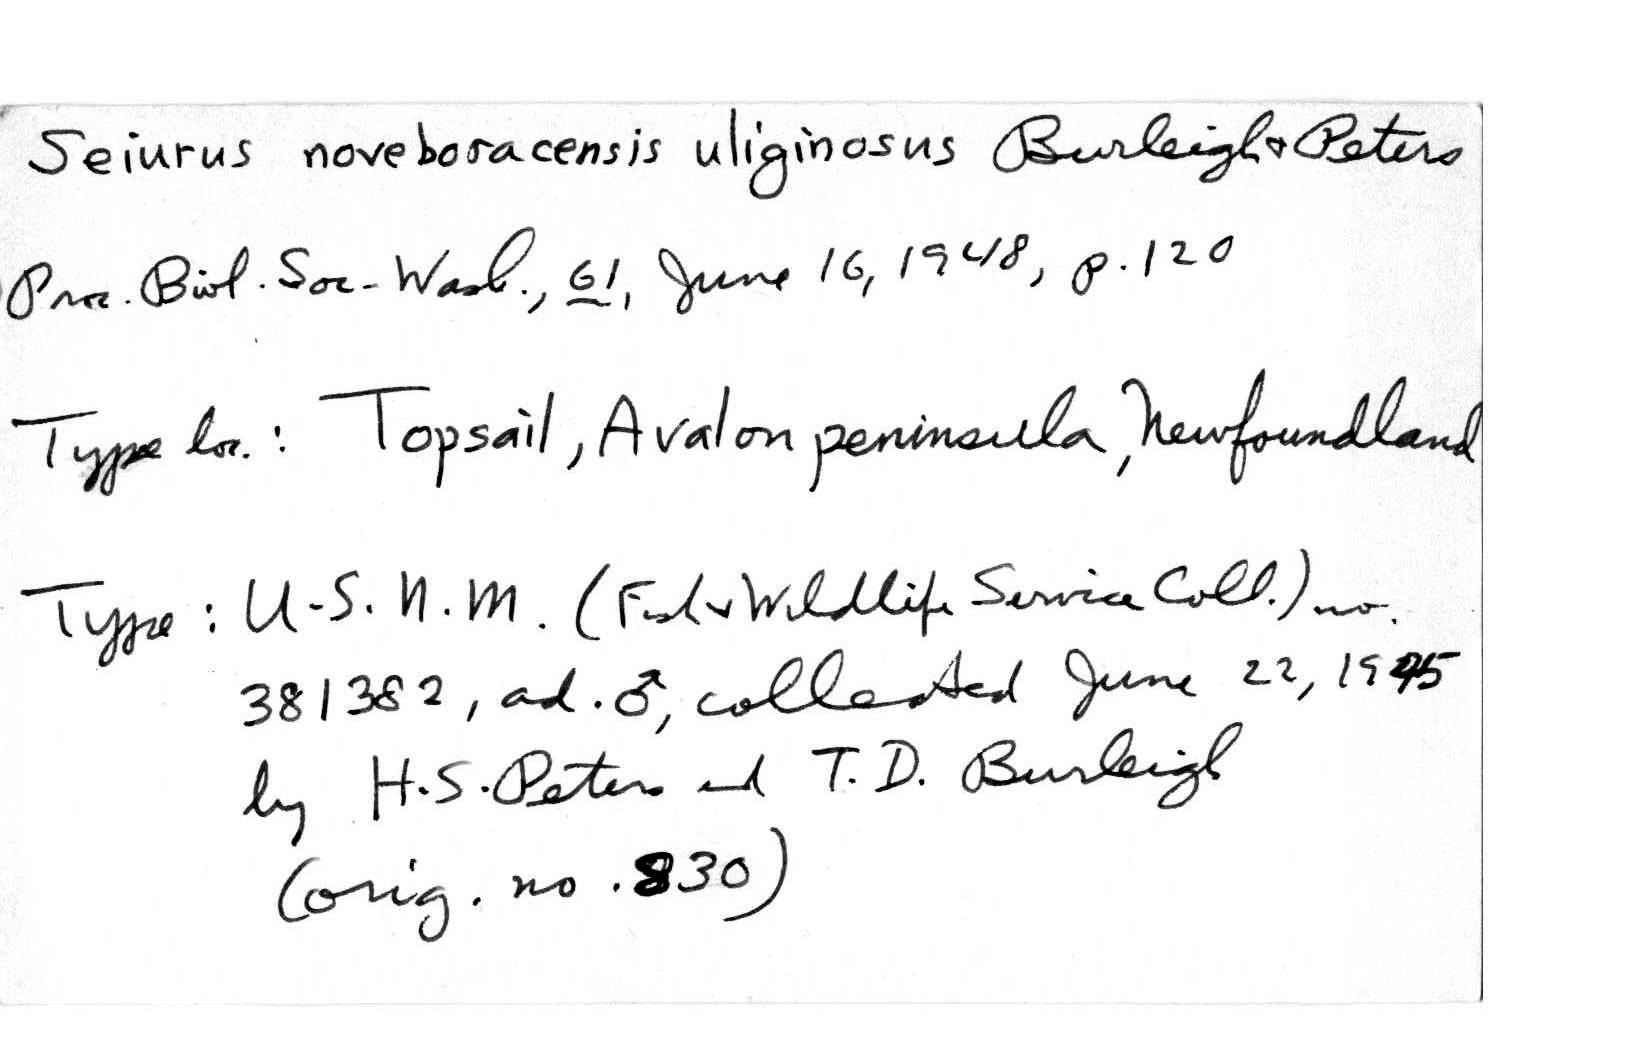 Seiurus noveboracensis uliginosus Burleigh & Peters
Proc. Biol. Soc. Wash., 61, June 16, 1948, p. 120
Type loc.: Topsail, Avalon peninsula, Newfoundland
Type: U.S.N.M. (Fish & Wildlife Service Coll.) no.
381382, ad. ♂, collected June 22, 1945
by H.S. Peters and T.D. Burleigh
(orig. no. 830)